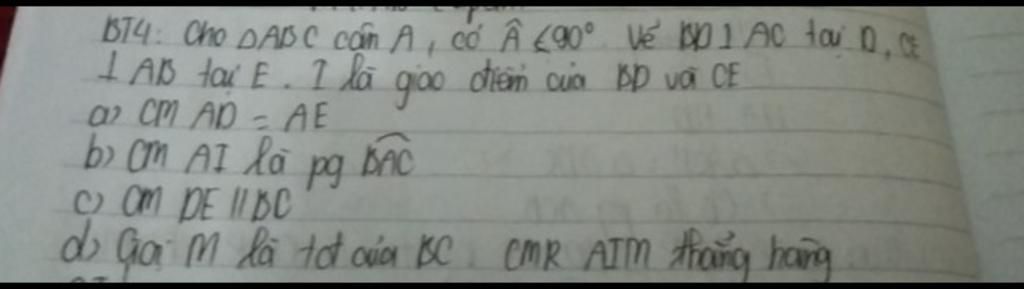 BT4: Cho △ABC cân A, có Â < 90° Vẽ BD ⊥ AC tại D, CE
⊥ AB tại E. I là giao điểm của BD và CE
a) CM AD = AE
b) CM AI là pg BAC
c) CM DE // BC
d) Gọi M là tđ của BC CMR AIM thẳng hàng